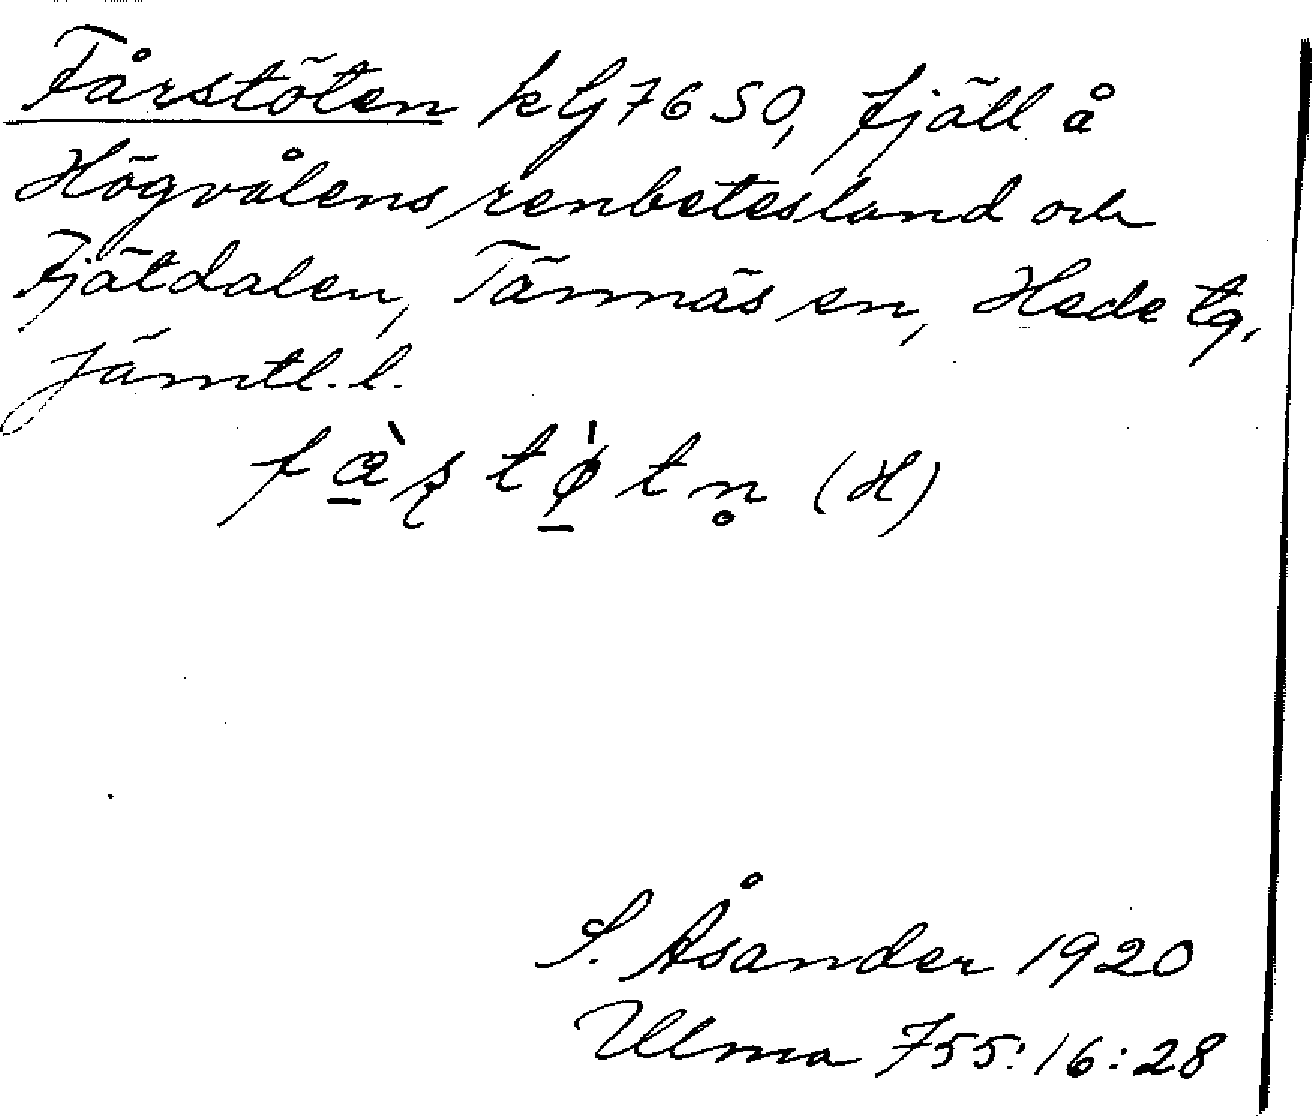 Fårstöten k G7650, fjäll å
Högvålens renbetesland och
Fjätdalen, Tännäs sn, Hede tg,
Jämtl. l.
fæ̠̀ʂtø̠̀tn̥ (H)
S. Åsander 1920
Ulma 755:16:28